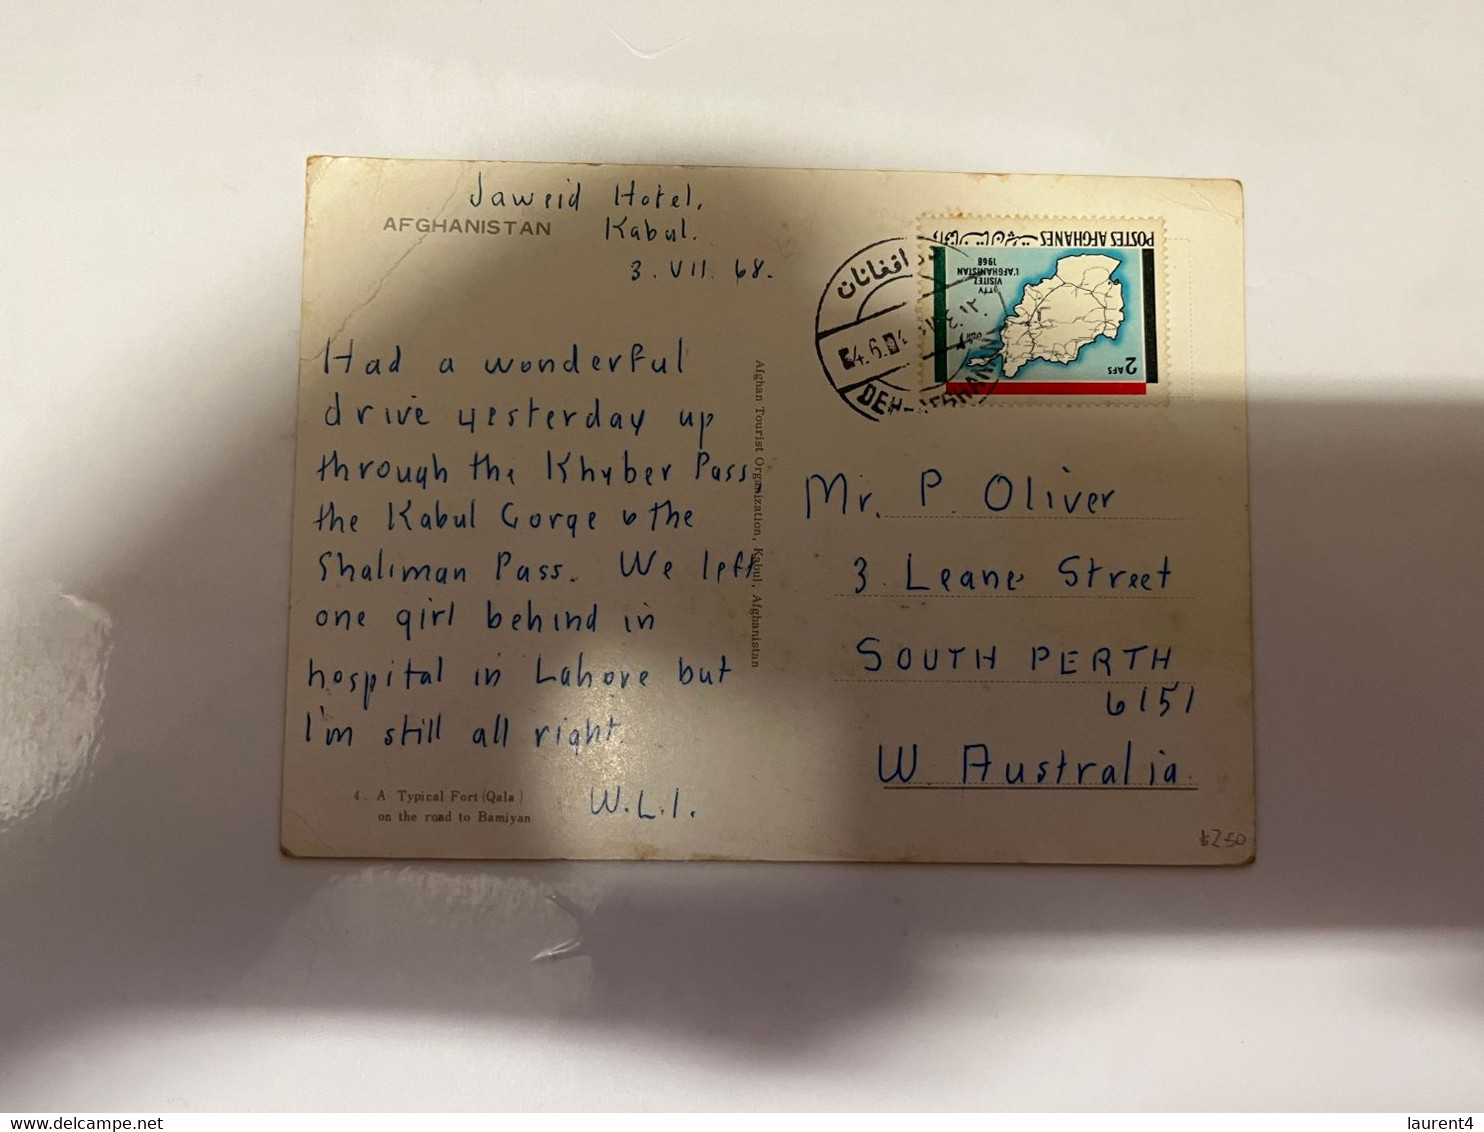 Jaweid Hotel,
AFGHANISTAN
Kabul.
3. VII. 68.
Had a wonderful
drive yesterday up
through the Khyber Pass,
the Kabul Gorge & the
Shaliman Pass. We left
one girl behind in
hospital in Lahore but
I'm still all right.
W.L.I.
4. A Typical Fort (Qala)
on the road to Bamiyan
Afghan Tourist Organization, Kabul, Afghanistan
POSTES AFGHANES
1968
VISITEZ
L'AFGHANISTAN
١٣٤٧
2 AFS
افغانان
DEH-AFGHANAN
Mr. P. Oliver
3 Leane Street
SOUTH PERTH
6151
W Australia
$2.50
delcampe.net
laurent4